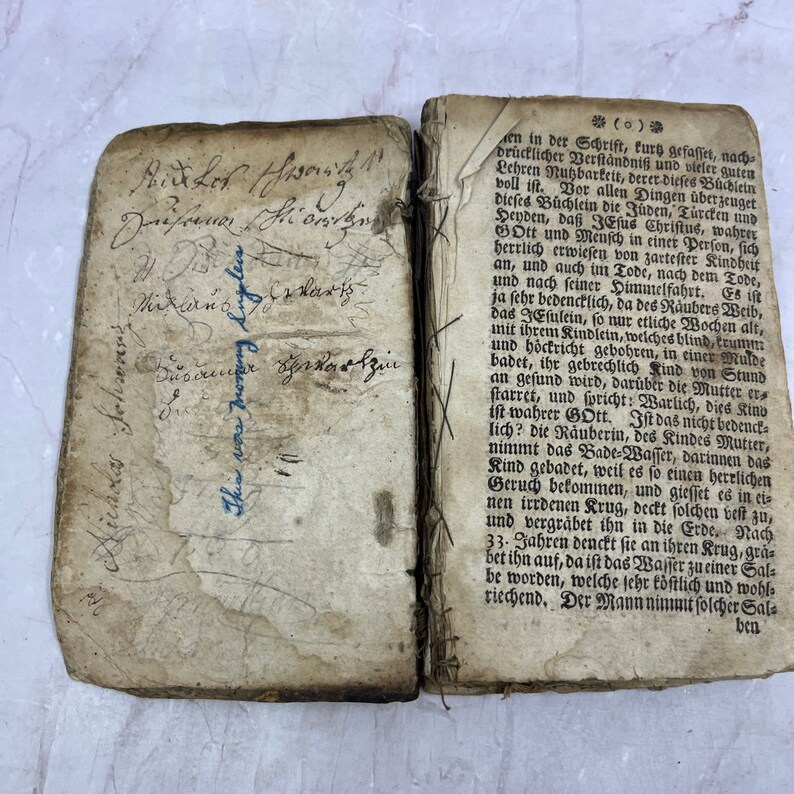 Nicklos Schwartz
Susanna Schwartzin
Nicklaus Schwartz
Susanna Schwartzin
Nicholas Schwartz
This was mommy Snyders
❋ ( o ) ❋
nen in der Schrift, kurtz gefasset, nach⸗
drücklicher Verständniß und vieler guten
Lehren Nutzbarkeit, derer dieses Büchlein
voll ist. Vor allen Dingen überzeuget
dieses Büchlein die Jüden, Türcken und
Heyden, daß JEsus Christus, wahrer
GOtt und Mensch in einer Person, sich
herrlich erwiesen von zartester Kindheit
an, und auch im Tode, nach dem Tode,
und nach seiner Himmelfahrt. Es ist
ja sehr bedencklich, da des Räubers Weib,
das JEsulein, so nur etliche Wochen alt,
mit ihrem Kindlein, welches blind, krumm
und höckricht gebohren, in einer Mulde
badet, ihr gebrechlich Kind von Stund
an gesund wird, darüber die Mutter er⸗
starret, und spricht: Warlich, dies Kind
ist wahrer GOtt. Ist das nicht bedenck⸗
lich? die Räuberin, des Kindes Mutter,
nimmt das Bade⸗Wasser, darinnen das
Kind gebadet, weil es so einen herrlichen
Geruch bekommen, und giesset es in ei⸗
nen irrdenen Krug, deckt solchen vest zu,
und vergräbet ihn in die Erde. Nach
33. Jahren denckt sie an ihren Krug, grä⸗
bet ihn auf, da ist das Wasser zu einer Sal⸗
be worden, welche sehr köstlich und wohl⸗
riechend. Der Mann nimmt solcher Sal⸗
ben